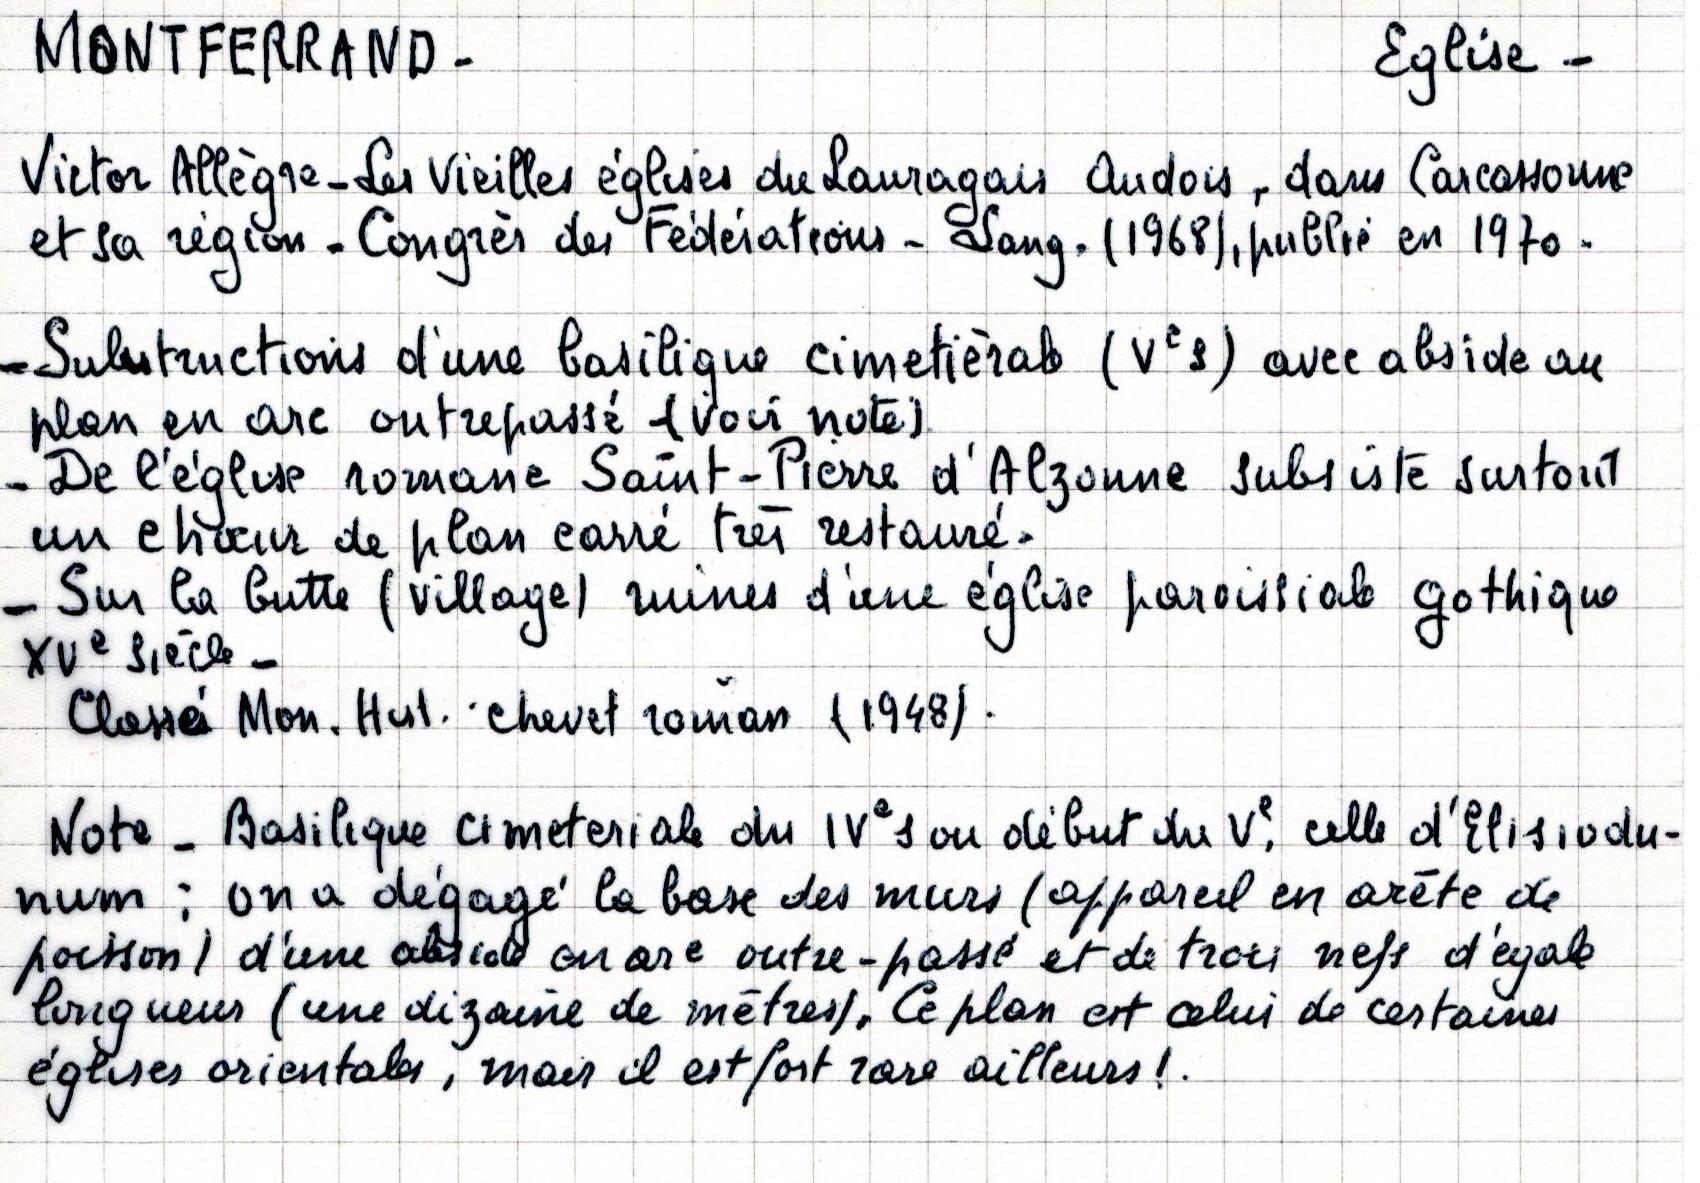 MONTFERRAND - Eglise -
Victor Allègre - Les Vieilles églises du Lauragais Audois, dans Carcassonne
et sa région - Congrès des Fédérations - Lang. (1968), publié en 1970.
- Substructions d'une basilique cimetièrale (Ve s) avec abside au
plan en arc outrepassé (voir note)
- De l'église romane Saint-Pierre d'Alzonne subsiste surtout
un chœur de plan carré très restauré.
- Sur la butte (village) ruines d'une église paroissiale gothique
XVe siècle -
Classé Mon. Hist. chevet roman (1948).
Note - Basilique cimeteriale du IVe s ou début du Ve, celle d'Elisiodu-
num : on a dégagé la base des murs (appareil en arête de
poisson) d'une abside en arc outre-passé et de trois nefs d'égale
longueur (une dizaine de mètres). Ce plan est celui de certaines
églises orientales, mais il est fort rare ailleurs !.